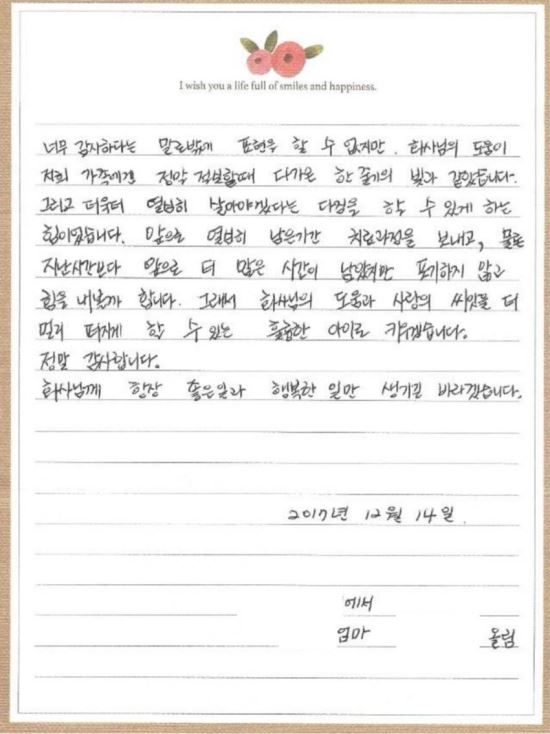 I wish you a life full of smiles and happiness.
너무 감사하다는 말로밖에 표현을 할 수 없지만. 회사님의 도움이
저희 가족에겐 절망 적보할때 다가온 한 줄기의 빛과 같았습니다.
그리고 더욱더 열심히 살아야겠다는 다짐을 할 수 있게 하는
힘이었습니다. 앞으로 열심히 남은기간 치료과정을 보내고, 물론
지난시간보다 앞으로 더 많은 시간이 남았지만 포기하지 않고
힘을 내볼까 합니다. 그래서 회사님의 도움과 사랑의 씨앗을 더
멀리 퍼지게 할 수 있는 훌륭한 아이로 키우겠습니다.
정말 감사합니다.
회사님께 항상 좋은일과 행복한 일만 생기길 바라겠습니다.
2017년 12월 14일.
에서
엄마 올림